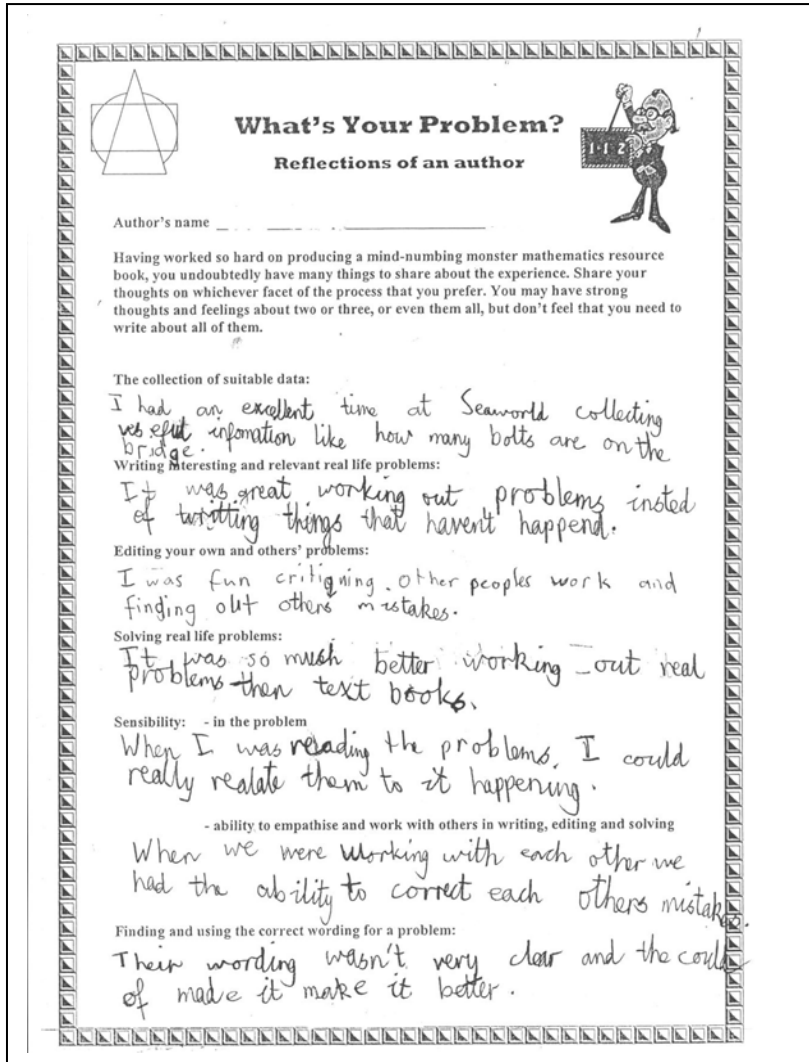 What's Your Problem?
Reflections of an author
1 1 2
Author's name
Having worked so hard on producing a mind-numbing monster mathematics resource
book, you undoubtedly have many things to share about the experience. Share your
thoughts on whichever facet of the process that you prefer. You may have strong
thoughts and feelings about two or three, or even them all, but don't feel that you need to
write about all of them.
The collection of suitable data:
I had an excellent time at Seaworld collecting
infomation like how many bolts are on the
bridge.
Writing interesting and relevant real life problems:
It was great working out problems insted
of writting things that havent happend.
Editing your own and others' problems:
I was fun critiqning other peoples work and
finding out others mistakes.
Solving real life problems:
It was so mush better working out real
problems then text books.
Sensibility: - in the problem
When I was reading the problems, I could
really realate them to it happening.
- ability to empathise and work with others in writing, editing and solving
When we were working with each other we
had the ability to correct each others mistakes.
Finding and using the correct wording for a problem:
Their wording wasn't very clear and the could
of made it make it better.